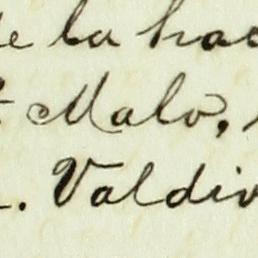 de la hac
t Malo,
. Valdiv